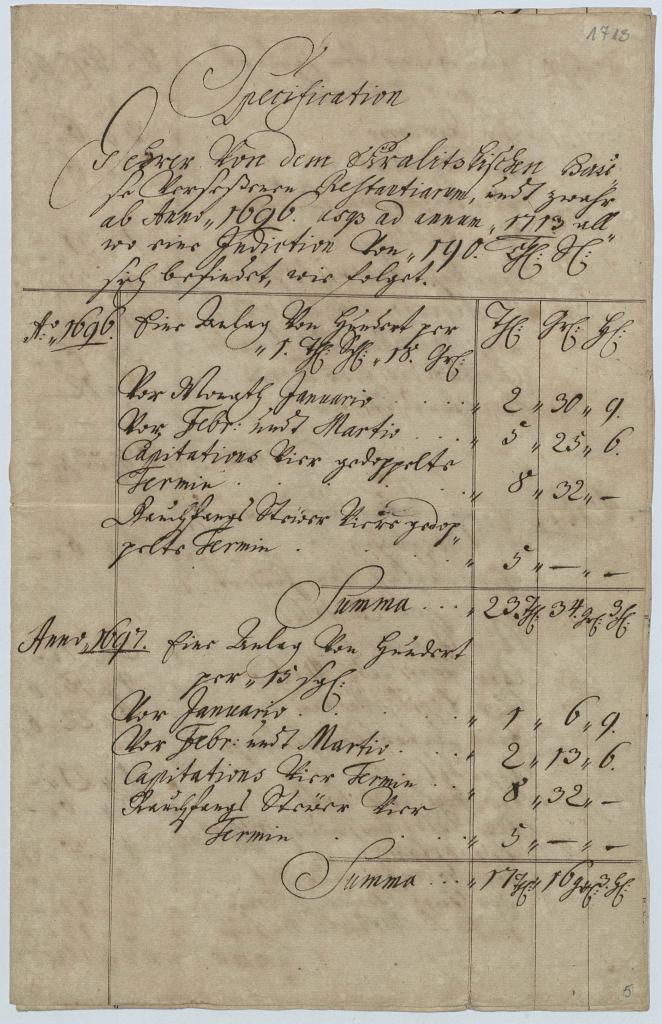 1713
Specification
Derer Von dem Kralitzkischen Hau
se Versessenen Restantiarum, undt zwahr
ab Anno 1696. usq ad annum 1713 all
wo eine Indiction Von 190. Thl: Sl:
sich befindet, wie folget.
Ao: 1696. Eine Anlag Von Hundert per Thl: Grl: Hl:
1. Thl: 18. Grl:
Vor Monath Januario . . . . " 2 " 30 " 9.
Vor Febr: undt Martio . . . " 5 " 25 " 6.
Capitations Vier gedoppelte
Termin . . . . " 8 " 32 " —
Rauchfangs Steüer Viere gedop
pelte Termin . . . . " 5 " — " —
Summa . . . " 23. Thl: 34. grl: 3 hl:
Anno 1697. Eine Anlag Von Hundert
per 15 sgl:
Vor Januario . . . . " 1 " 6 " 9.
Vor Febr: undt Martio . . . " 2 " 13 " 6.
Capitations Vier Termin . . . " 8 " 32 " —
Rauchfangs Steüer Vier
Termin . . . . " 5 " — " —
Summa . . . " 17 Thl: 16 grl: 3. hl:
5